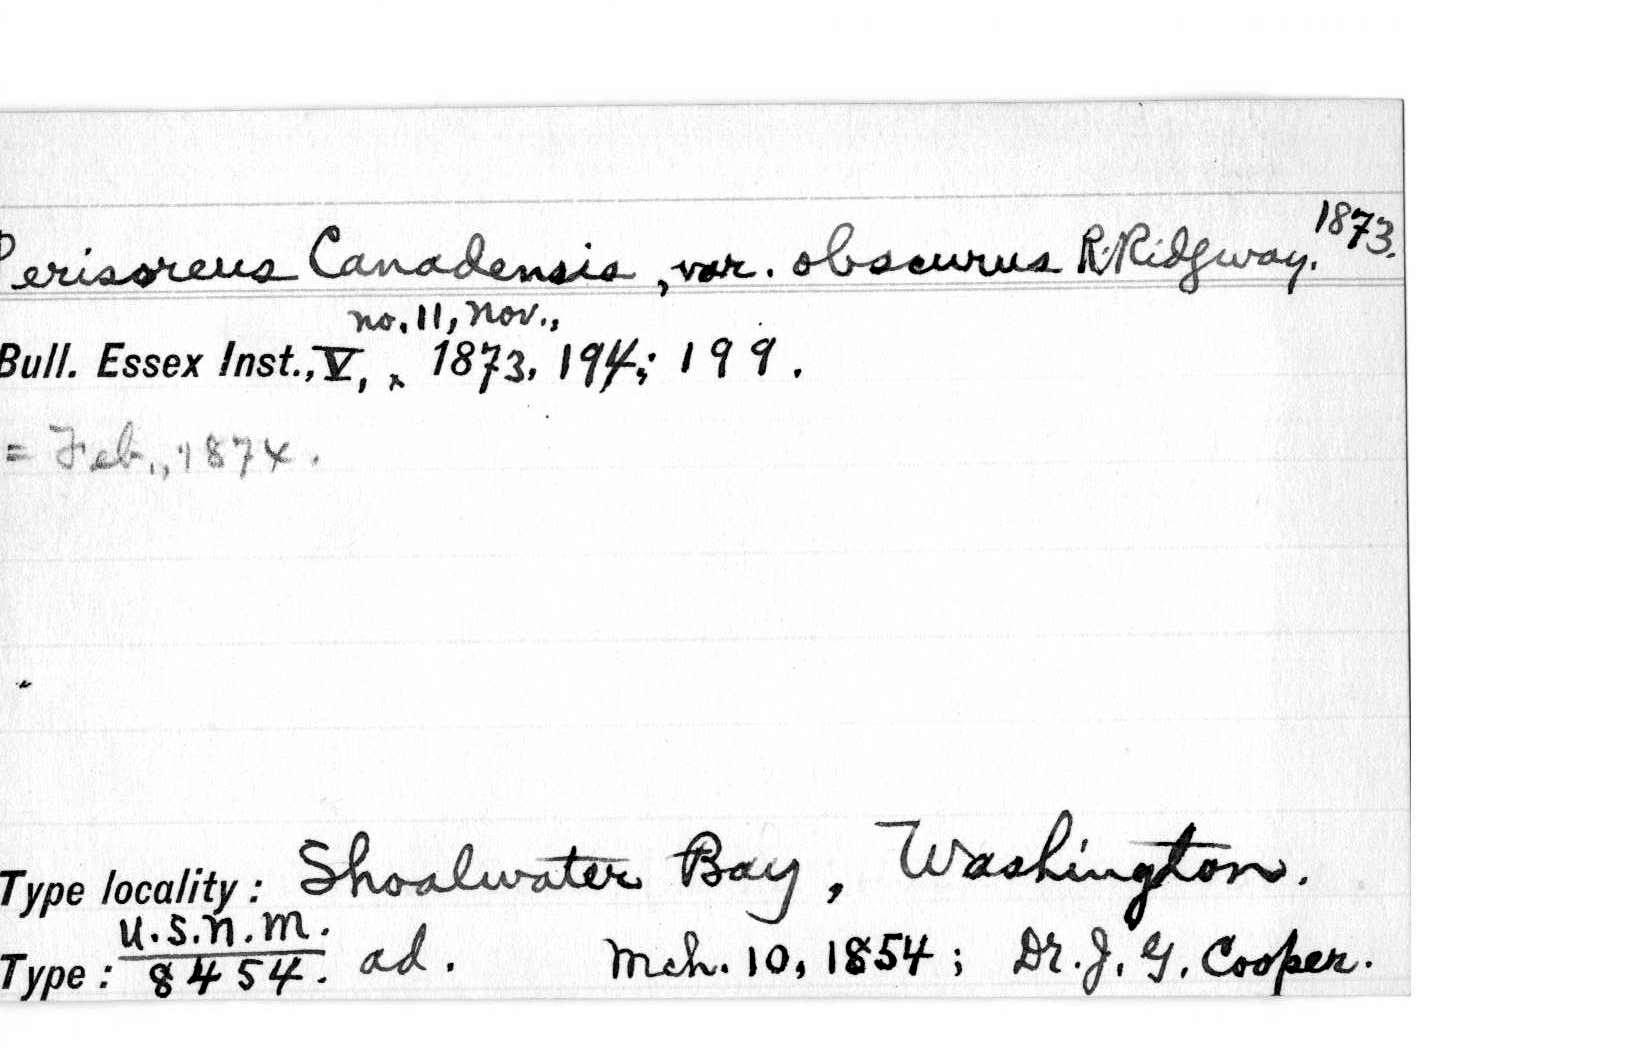 Perisoreus Canadensis, var. obscurus R. Ridgway. 1873.
no. 11, Nov.,
Bull. Essex Inst., V, ^ 1873, 194; 199.
= Feb., 1874.
Type locality: Shoalwater Bay, Washington.
U.S.N.M.
Type: 8454. ad. Mch. 10, 1854; Dr. J. G. Cooper.